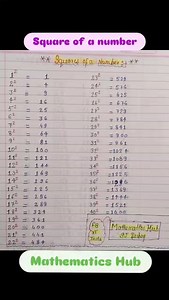 Square of a number
** Squares of a Number **
1² = 1
2² = 4
3² = 9
4² = 16
5² = 25
6² = 36
7² = 49
8² = 64
9² = 81
10² = 100
11² = 121
12² = 144
13² = 169
14² = 196
15² = 225
16² = 256
17² = 289
18² = 324
19² = 361
20² = 400
21² = 441
22² = 484
23² = 529
24² = 576
25² = 625
26² = 676
27² = 729
28² = 784
29² = 841
30² = 900
31² = 961
32² = 1024
33² = 1089
34² = 1156
35² = 1225
36² = 1296
37² = 1369
38² = 1444
39² = 1521
40² = 1600
Mathematics Hub
Mathematics Hub